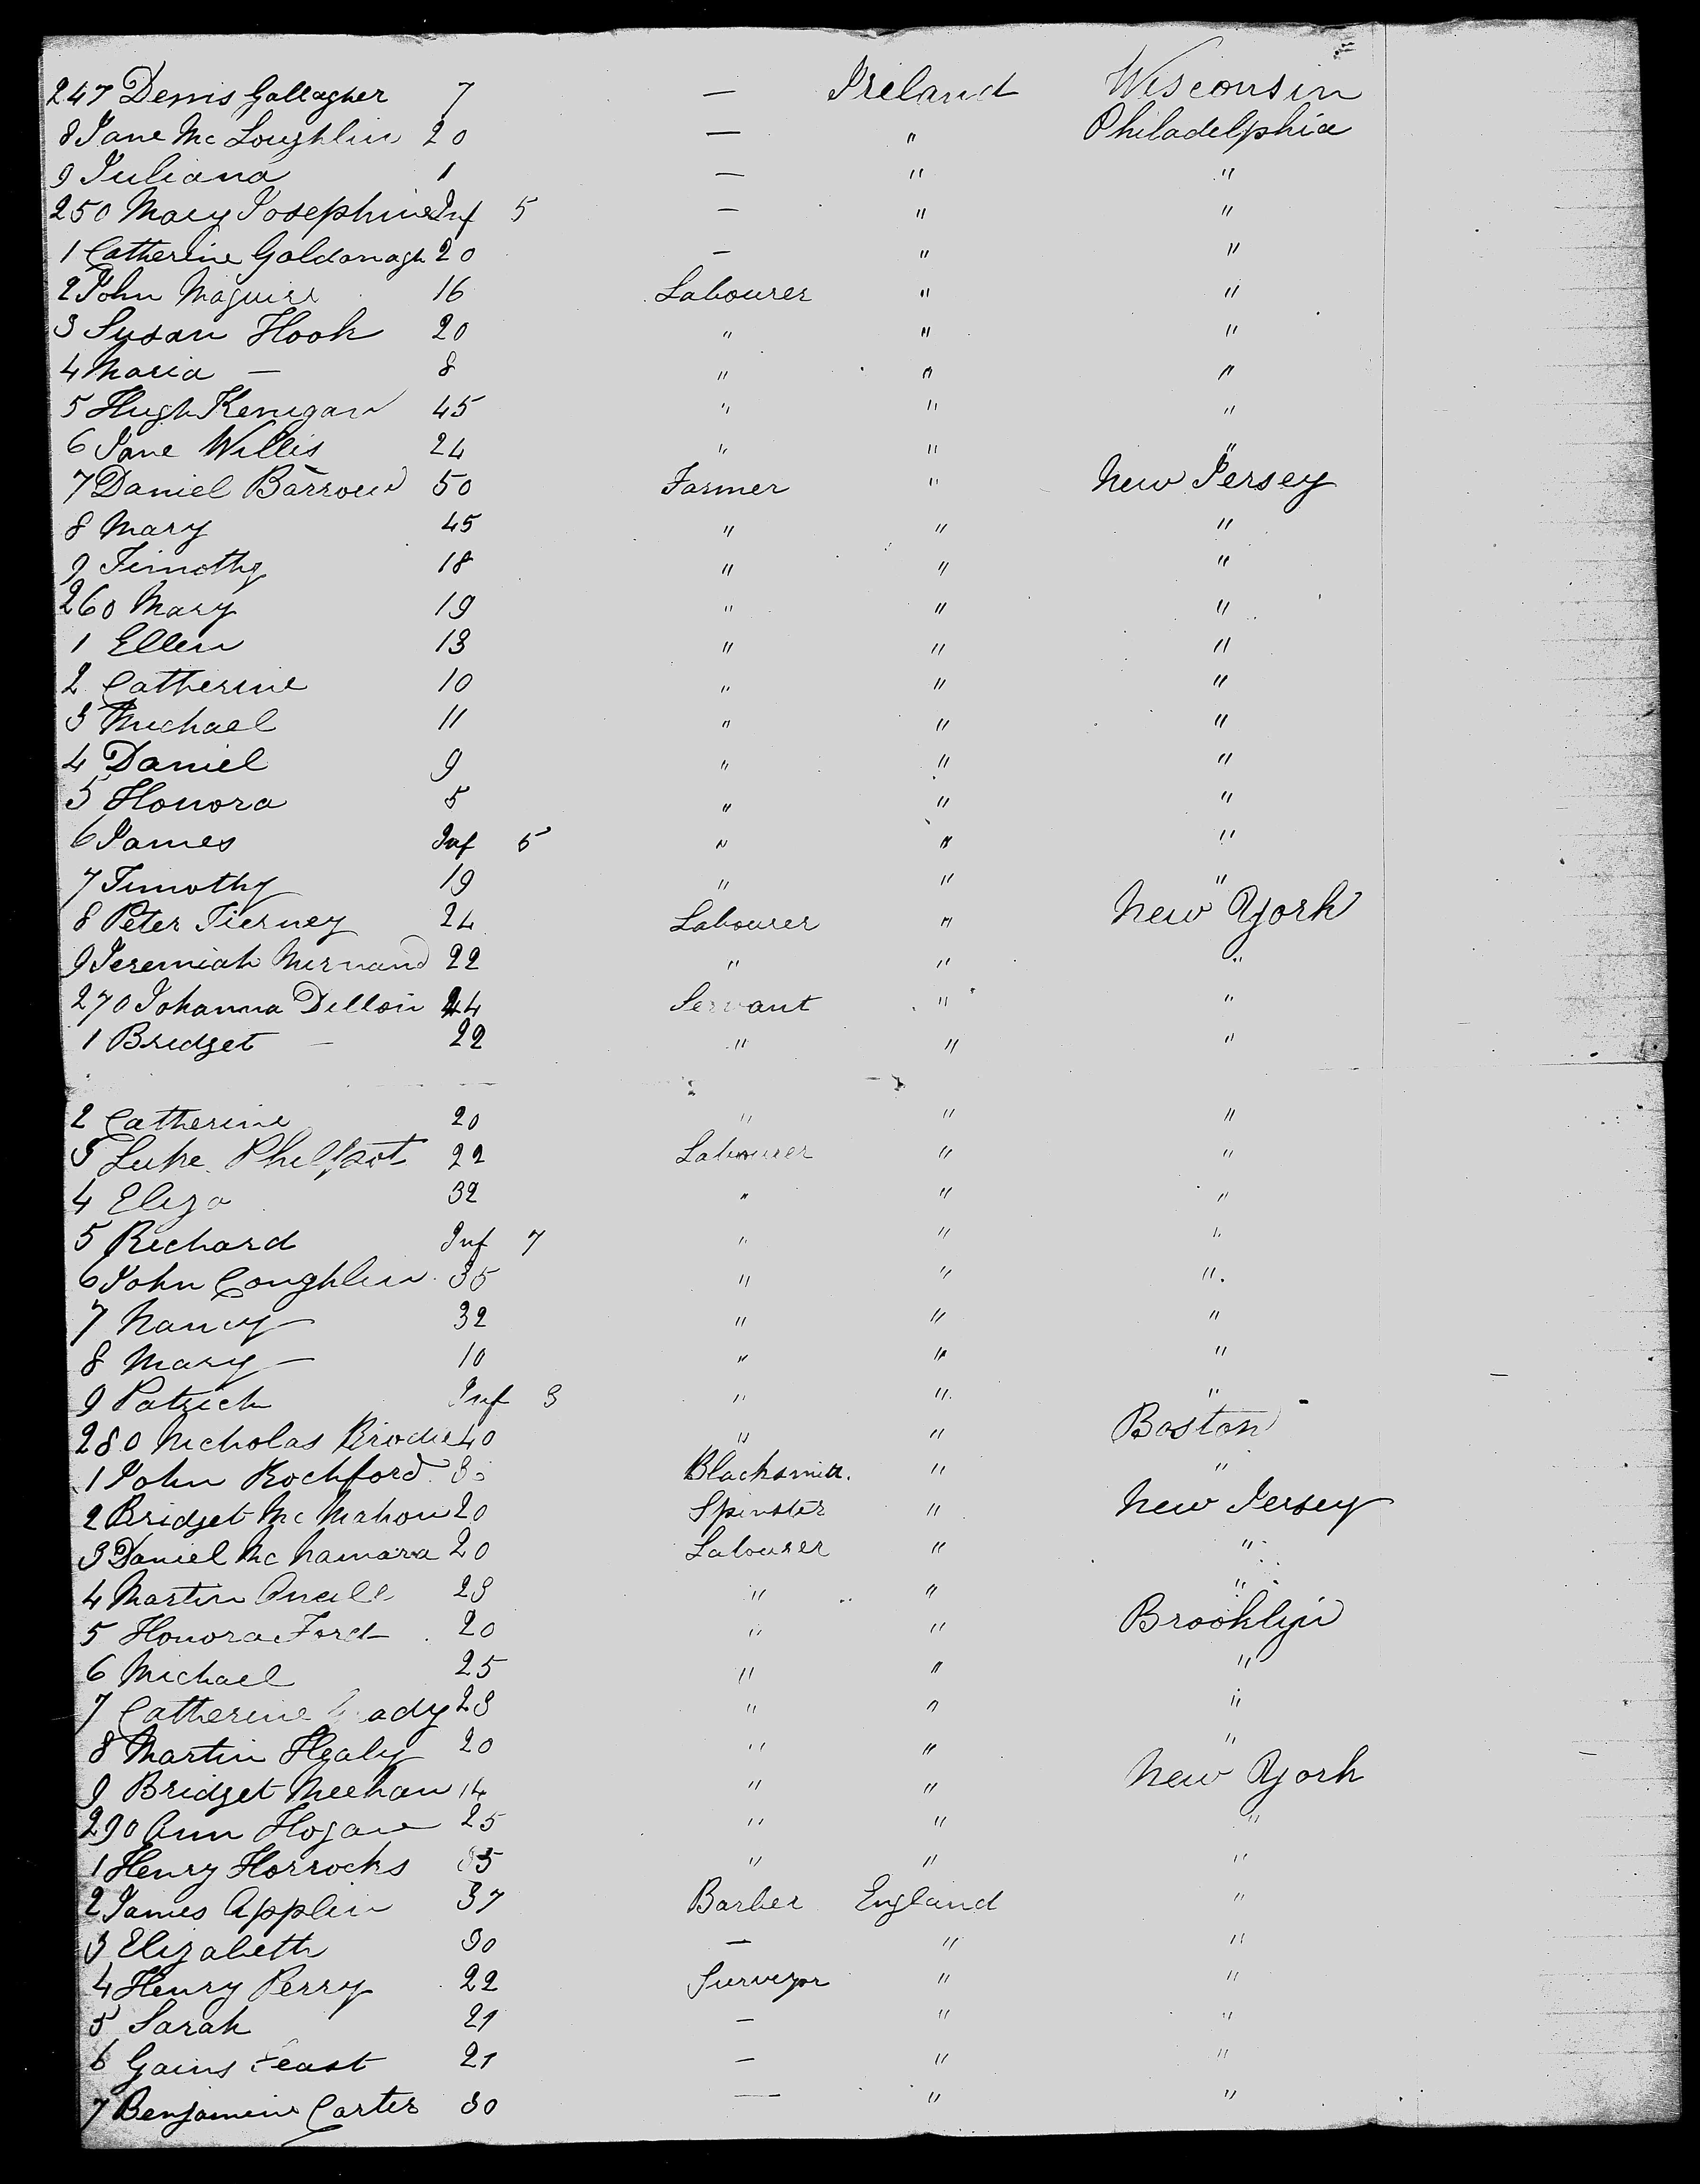 247 Denis Gallagher 7 — Ireland Wisconsin
8 Jane McLoughlin 20 — " Philadelphia
9 Juliana 1 — " "
250 Mary Josephine Inf 5 — " "
1 Catherine Goldanagh 20 — " "
2 John Maguire 16 Labourer " "
3 Susan Hook 20 " " "
4 Maria — 8 " " "
5 Hugh Kenigan 45 " " "
6 Jane Willis 24 " " "
7 Daniel Barroun 50 Farmer " New Jersey
8 Mary 45 " " "
9 Timothy 18 " " "
260 Mary 19 " " "
1 Ellen 13 " " "
2 Catherine 10 " " "
3 Michael 11 " " "
4 Daniel 9 " " "
5 Honora 5 " " "
6 James Inf 5 " " "
7 Timothy 19 " " "
8 Peter Tierney 24 Labourer " New York
9 Jeremiah 22 " " "
270 Johanna Dillon 24 Servant " "
1 Bridget — 22 " " "
2 Catherine 20 " " "
3 Luke Philpot 22 Labourer " "
4 Eliza 32 " " "
5 Richard Inf 7 " " "
6 John Coughlin 35 " " "
7 Nancy — 32 " " "
8 Mary — 10 " " "
9 Patrick Inf 3 " " "
280 Nicholas Brodie 40 " " Boston
1 John Rochford Blacksmith " "
2 Bridget McMahon 20 Spinster " New Jersey
3 Daniel McNamara 20 Labourer " "
4 Martin Oneill 23 " " "
5 Honora Ford 20 " " Brooklyn
6 Michael 25 " " "
7 Catherine 23 " " "
8 Martin Healy 20 " " "
9 Bridget Meehan 14 " " New York
290 Ann Hogan 25 " " "
1 Henry Horrocks 35 " " "
2 James Applin 37 Barber England "
3 Elizabeth 30 — " "
4 Henry Perry 22 Surveyor " "
5 Sarah 21 — " "
6 Gains 21 — " "
7 Benjamin Carter 30 — " "